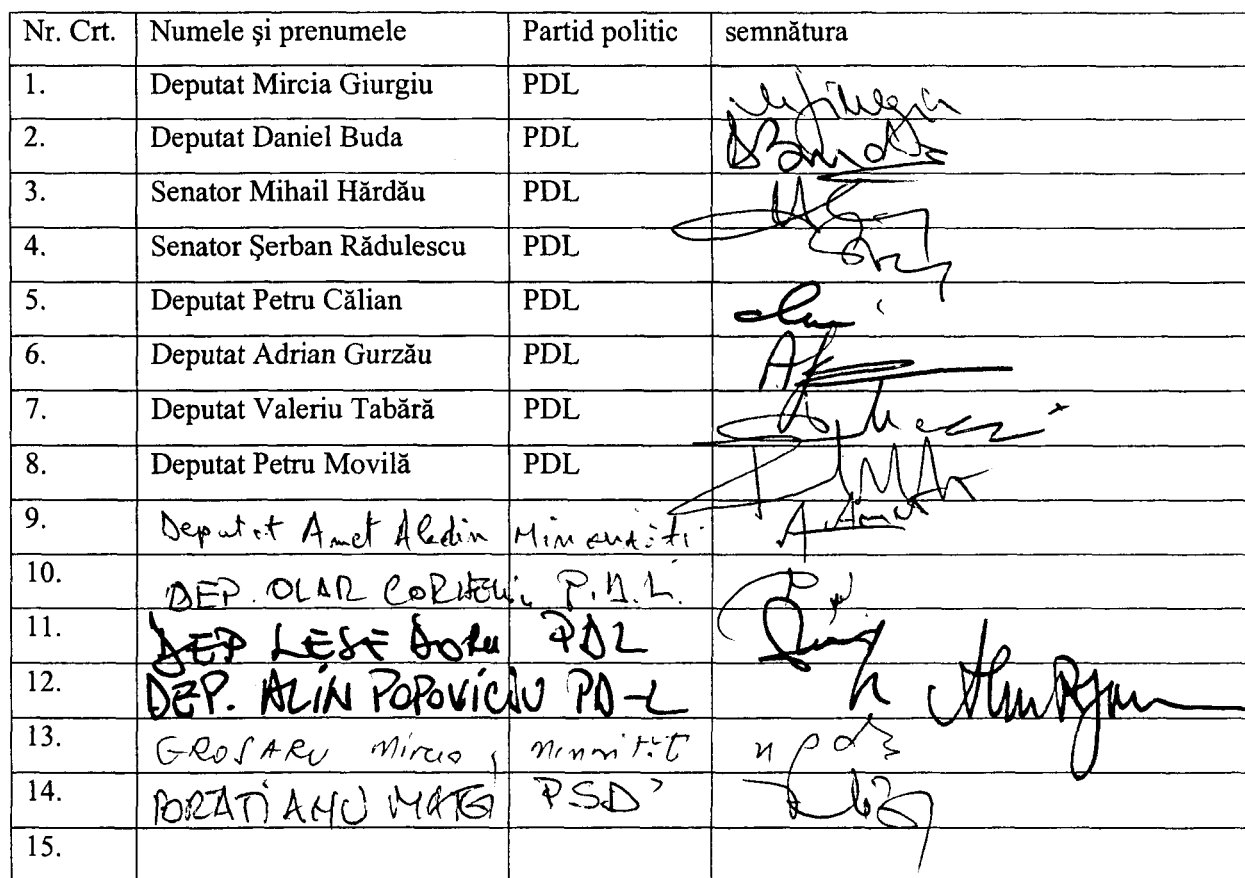 Nr. Crt. Numele și prenumele Partid politic semnătura
1. Deputat Mircia Giurgiu PDL
2. Deputat Daniel Buda PDL
3. Senator Mihail Hărdău PDL
4. Senator Șerban Rădulescu PDL
5. Deputat Petru Călian PDL
6. Deputat Adrian Gurzău PDL
7. Deputat Valeriu Tabără PDL
8. Deputat Petru Movilă PDL
9. Deputat Amet Aledin Minorități A. Amet
10. DEP. OLAR CORNELIU P.D.L.
11. DEP LESE DORU PDL
12. DEP. ALIN POPOVICIU PD-L
13. GROSARU Mircea,
14. MATEI PSD
15.